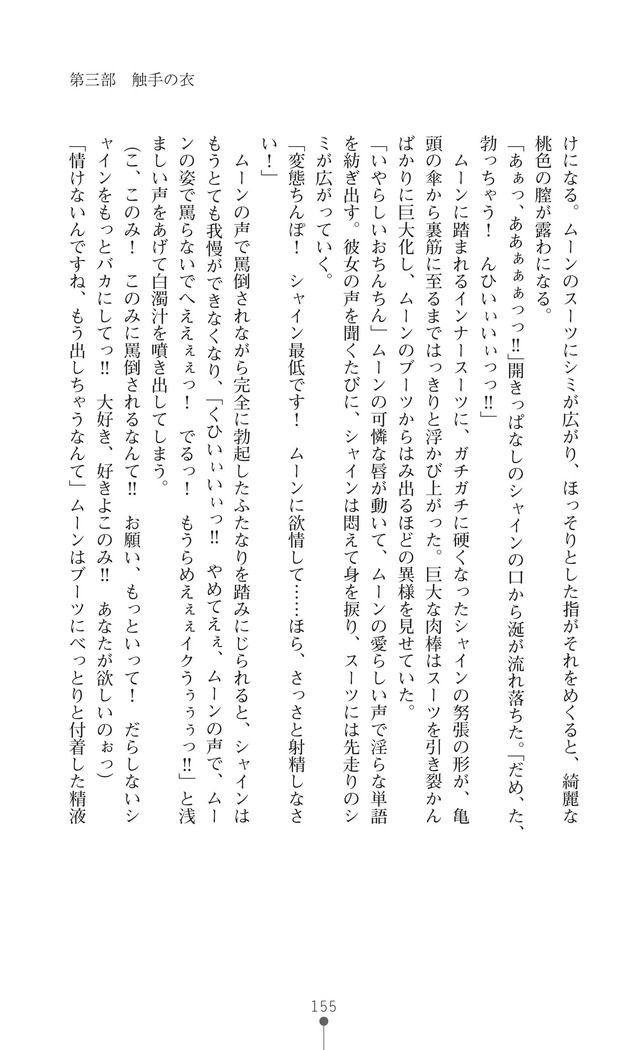 第三部　触手の衣
けになる。ムーンのスーツにシミが広がり、ほっそりとした指がそれをめくると、綺麗な
桃色の膣が露わになる。
「あぁっ、ああぁぁぁっっ‼」開きっぱなしのシャインの口から涎が流れ落ちた。「だめ、た、
勃っちゃう！　んひいぃいぃっっ‼」
　ムーンに踏まれるインナースーツに、ガチガチに硬くなったシャインの努張の形が、亀
頭の傘から裏筋に至るまではっきりと浮かび上がった。巨大な肉棒はスーツを引き裂かん
ばかりに巨大化し、ムーンのブーツからはみ出るほどの異様を見せていた。
「いやらしいおちんちん」ムーンの可憐な唇が動いて、ムーンの愛らしい声で淫らな単語
を紡ぎ出す。彼女の声を聞くたびに、シャインは悶えて身を捩り、スーツには先走りのシ
ミが広がっていく。
「変態ちんぽ！　シャイン最低です！　ムーンに欲情して……ほら、さっさと射精しなさ
い！」
　ムーンの声で罵倒されながら完全に勃起したふたなりを踏みにじられると、シャインは
もうとても我慢ができなくなり、「くひいぃいぃっ‼　やめてえぇ、ムーンの声で、ムー
ンの姿で罵らないでへええぇぇっ！　でるっ！　もうらめえぇぇイクうぅぅぅっ‼」と浅
ましい声をあげて白濁汁を噴き出してしまう。
（こ、このみ！　このみに罵倒されるなんて‼　お願い、もっといって！　だらしないシ
ャインをもっとバカにしてっ‼　大好き、好きよこのみ‼　あなたが欲しいのぉっ）
「情けないんですね、もう出しちゃうなんて」ムーンはブーツにべっとりと付着した精液
155